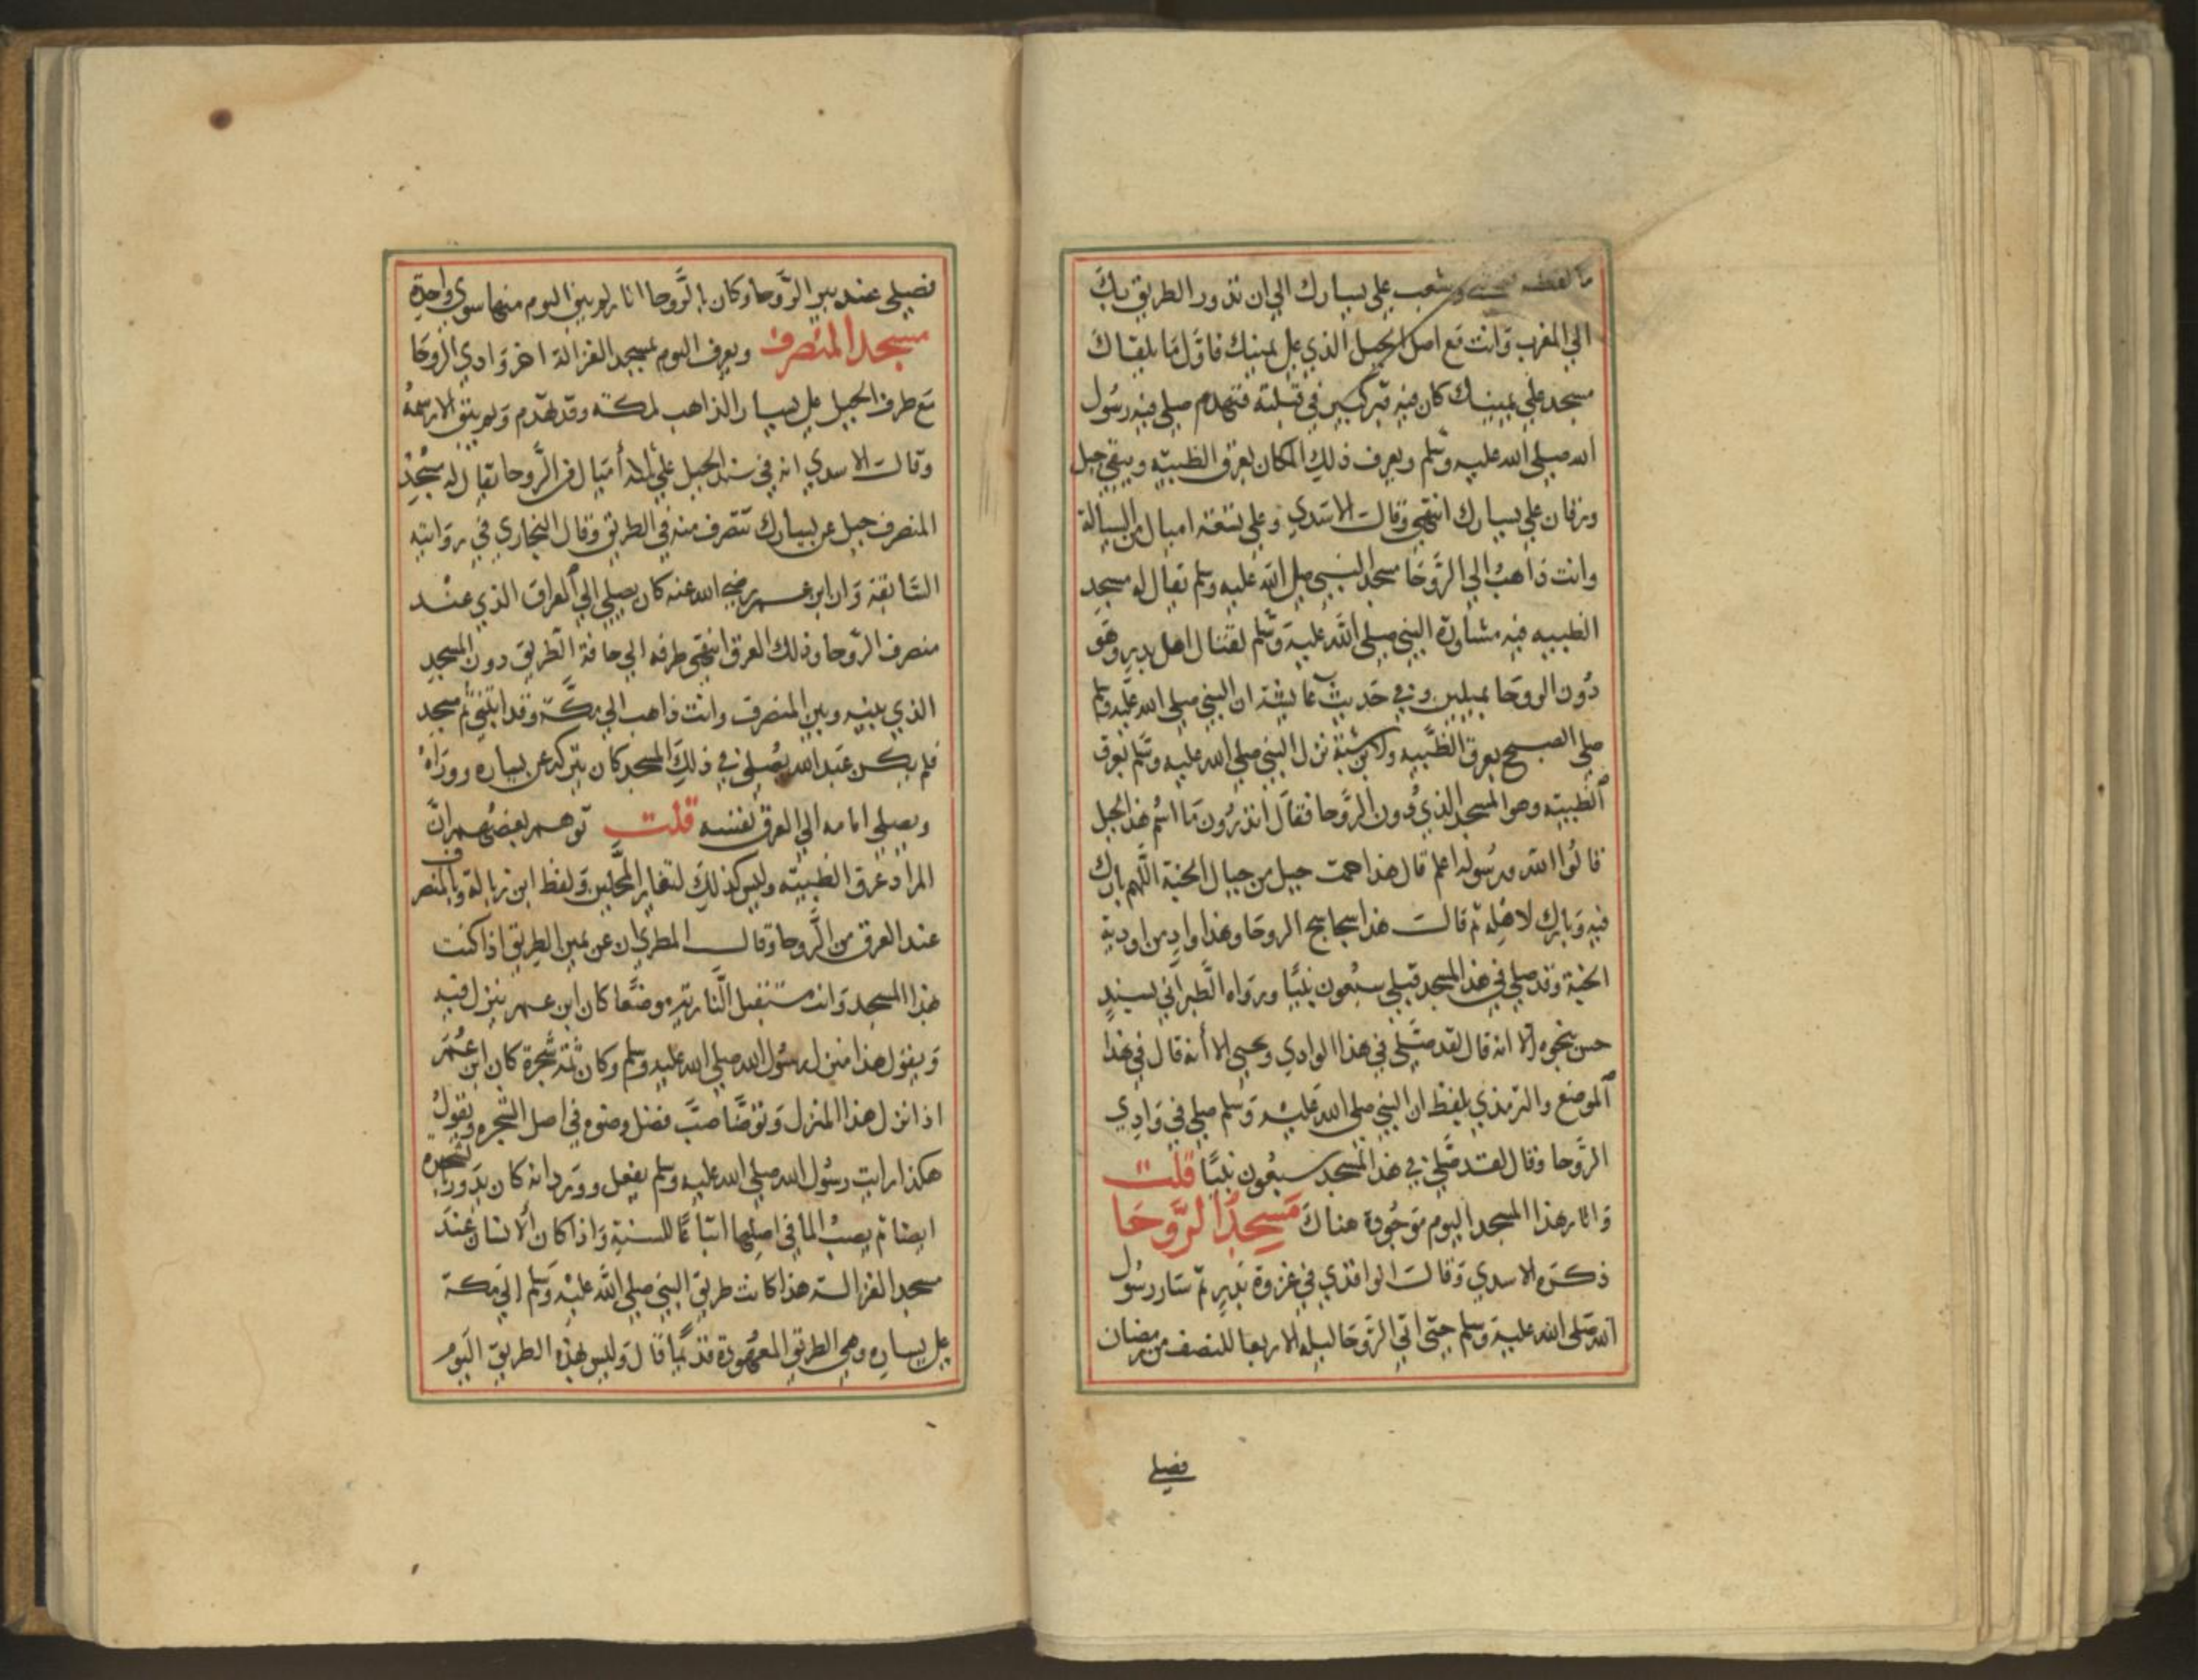 وشعب على يسارك الى ان تدور الطريق بك
الى المغرب وانت مع اصل الجبل الذي على يمينك فاول ما يلقاك
مسجد على يمينك كان فيه قبر كبير في قبلته فتهدم صلى فيه رسول
الله صلى الله عليه وسلم ويعرف ذلك المكان بعرق الظبية ويبقى جبل
ورقان على يسارك انتهى وقال الاسدي وعلى تسعة اميال من السيالة
وانت ذاهب الى الروحا مسجد النبي صلى الله عليه وسلم يقال له مسجد
الظبيه فيه مشاورة النبي صلى الله عليه وسلم لقتال اهل بدر وهو
دون الروحا بميلين وفي حديث عايشة ان النبي صلى الله عليه وسلم
صلى الصبح بعرق الظبيه ولابن شبة نزل النبي صلى الله عليه وسلم بعرق
الظبية وهو المسجد الذي دون الروحا فقال اتدرون ما اسم هذا الجبل
قالوا الله ورسوله اعلم قال هذا حمت جبل من جبال الجنة اللهم بارك
فيه وبارك لاهله ثم قال هذا سجاسج الروحا وهذا واد من اودية
الجنة وقد صلى في هذا المسجد قبلي سبعون نبيا ورواه الطبراني بسند
حسن بنحوه الا انه قال لقد صلى في هذا الوادي ويحيى الا أنه قال في هذا
الموضع والترمذي بلفظ ان النبي صلى الله عليه وسلم صلى في وادي
الروحا وقال لقد صلى في هذا المسجد سبعون نبيا قلت
واثار هذا المسجد اليوم موجودة هناك مسجد الروحا
ذكره الاسدي وقال الواقدي في غزوة بدر ثم سار رسول
الله صلى الله عليه وسلم حتى اتى الروحا ليلة الاربعا للنصف من رمضان
فصلى
فصلى عند بير الروحا وكان بالروحا اثار لم يبق اليوم منها سوى واحدة
مسجد المنصرف ويعرف اليوم بمسجد الغزالة اخر وادي الروحا
مع طرف الجبل على يسار الذاهب لمكة وقد تهدم ولم يبق الا رسمه
وقال الاسدي انه في سند الجبل على ثلاثة أميال من الروحا يقال له مسجد
المنصرف جبل عن يسارك تنصرف منه في الطريق وقال البخاري في روايته
السابقة وان ابن عمر رضي الله عنه كان يصلي الى العراق الذي عند
منصرف الروحا وذلك العرق انتهى طرفه الى حافة الطريق دون المسجد
الذي بينه وبين المنصرف وانت ذاهب الى مكة وقد ابتني ثم مسجد
فلم يكن عبد الله يصلي في ذلك المسجد كان يتركه عن يساره ووراه
ويصلي امامه الى العرق نفسه قلت توهم بعضهم ان
المراد عرق الظبية وليس كذلك لتغاير المحلين ولفظ ابن زبالة وبالمنصرف
عند العرق من الروحا وقال المطري ان عن يمين الطريق اذا كنت
بهذا المسجد وانت مستقبل النازية موضعا كان ابن عمر ينزل فيه
ويقول هذا منزل رسول الله صلى الله عليه وسلم وكان ثمة شجرة كان ابن عمر
اذا نزل هذا المنزل وتوضا صب فضل وضوه في اصل الشجره ويقول
هكذا رايت رسول الله صلى الله عليه وسلم يفعل وورد انه كان يدور بالشجره
ايضا ثم يصب الما في اصلها اتباعا للسنة واذا كان الانسان عند
مسجد الغزالة هذا كانت طريق النبي صلى الله عليه وسلم الى مكة
على يساره وهي الطريق المعهودة قديما قال وليس بهذه الطريق اليوم